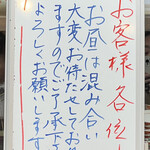 お客様各位
お昼は混み合い
大変お待たせしてお
ますのでご了承下
よろしくお願いします